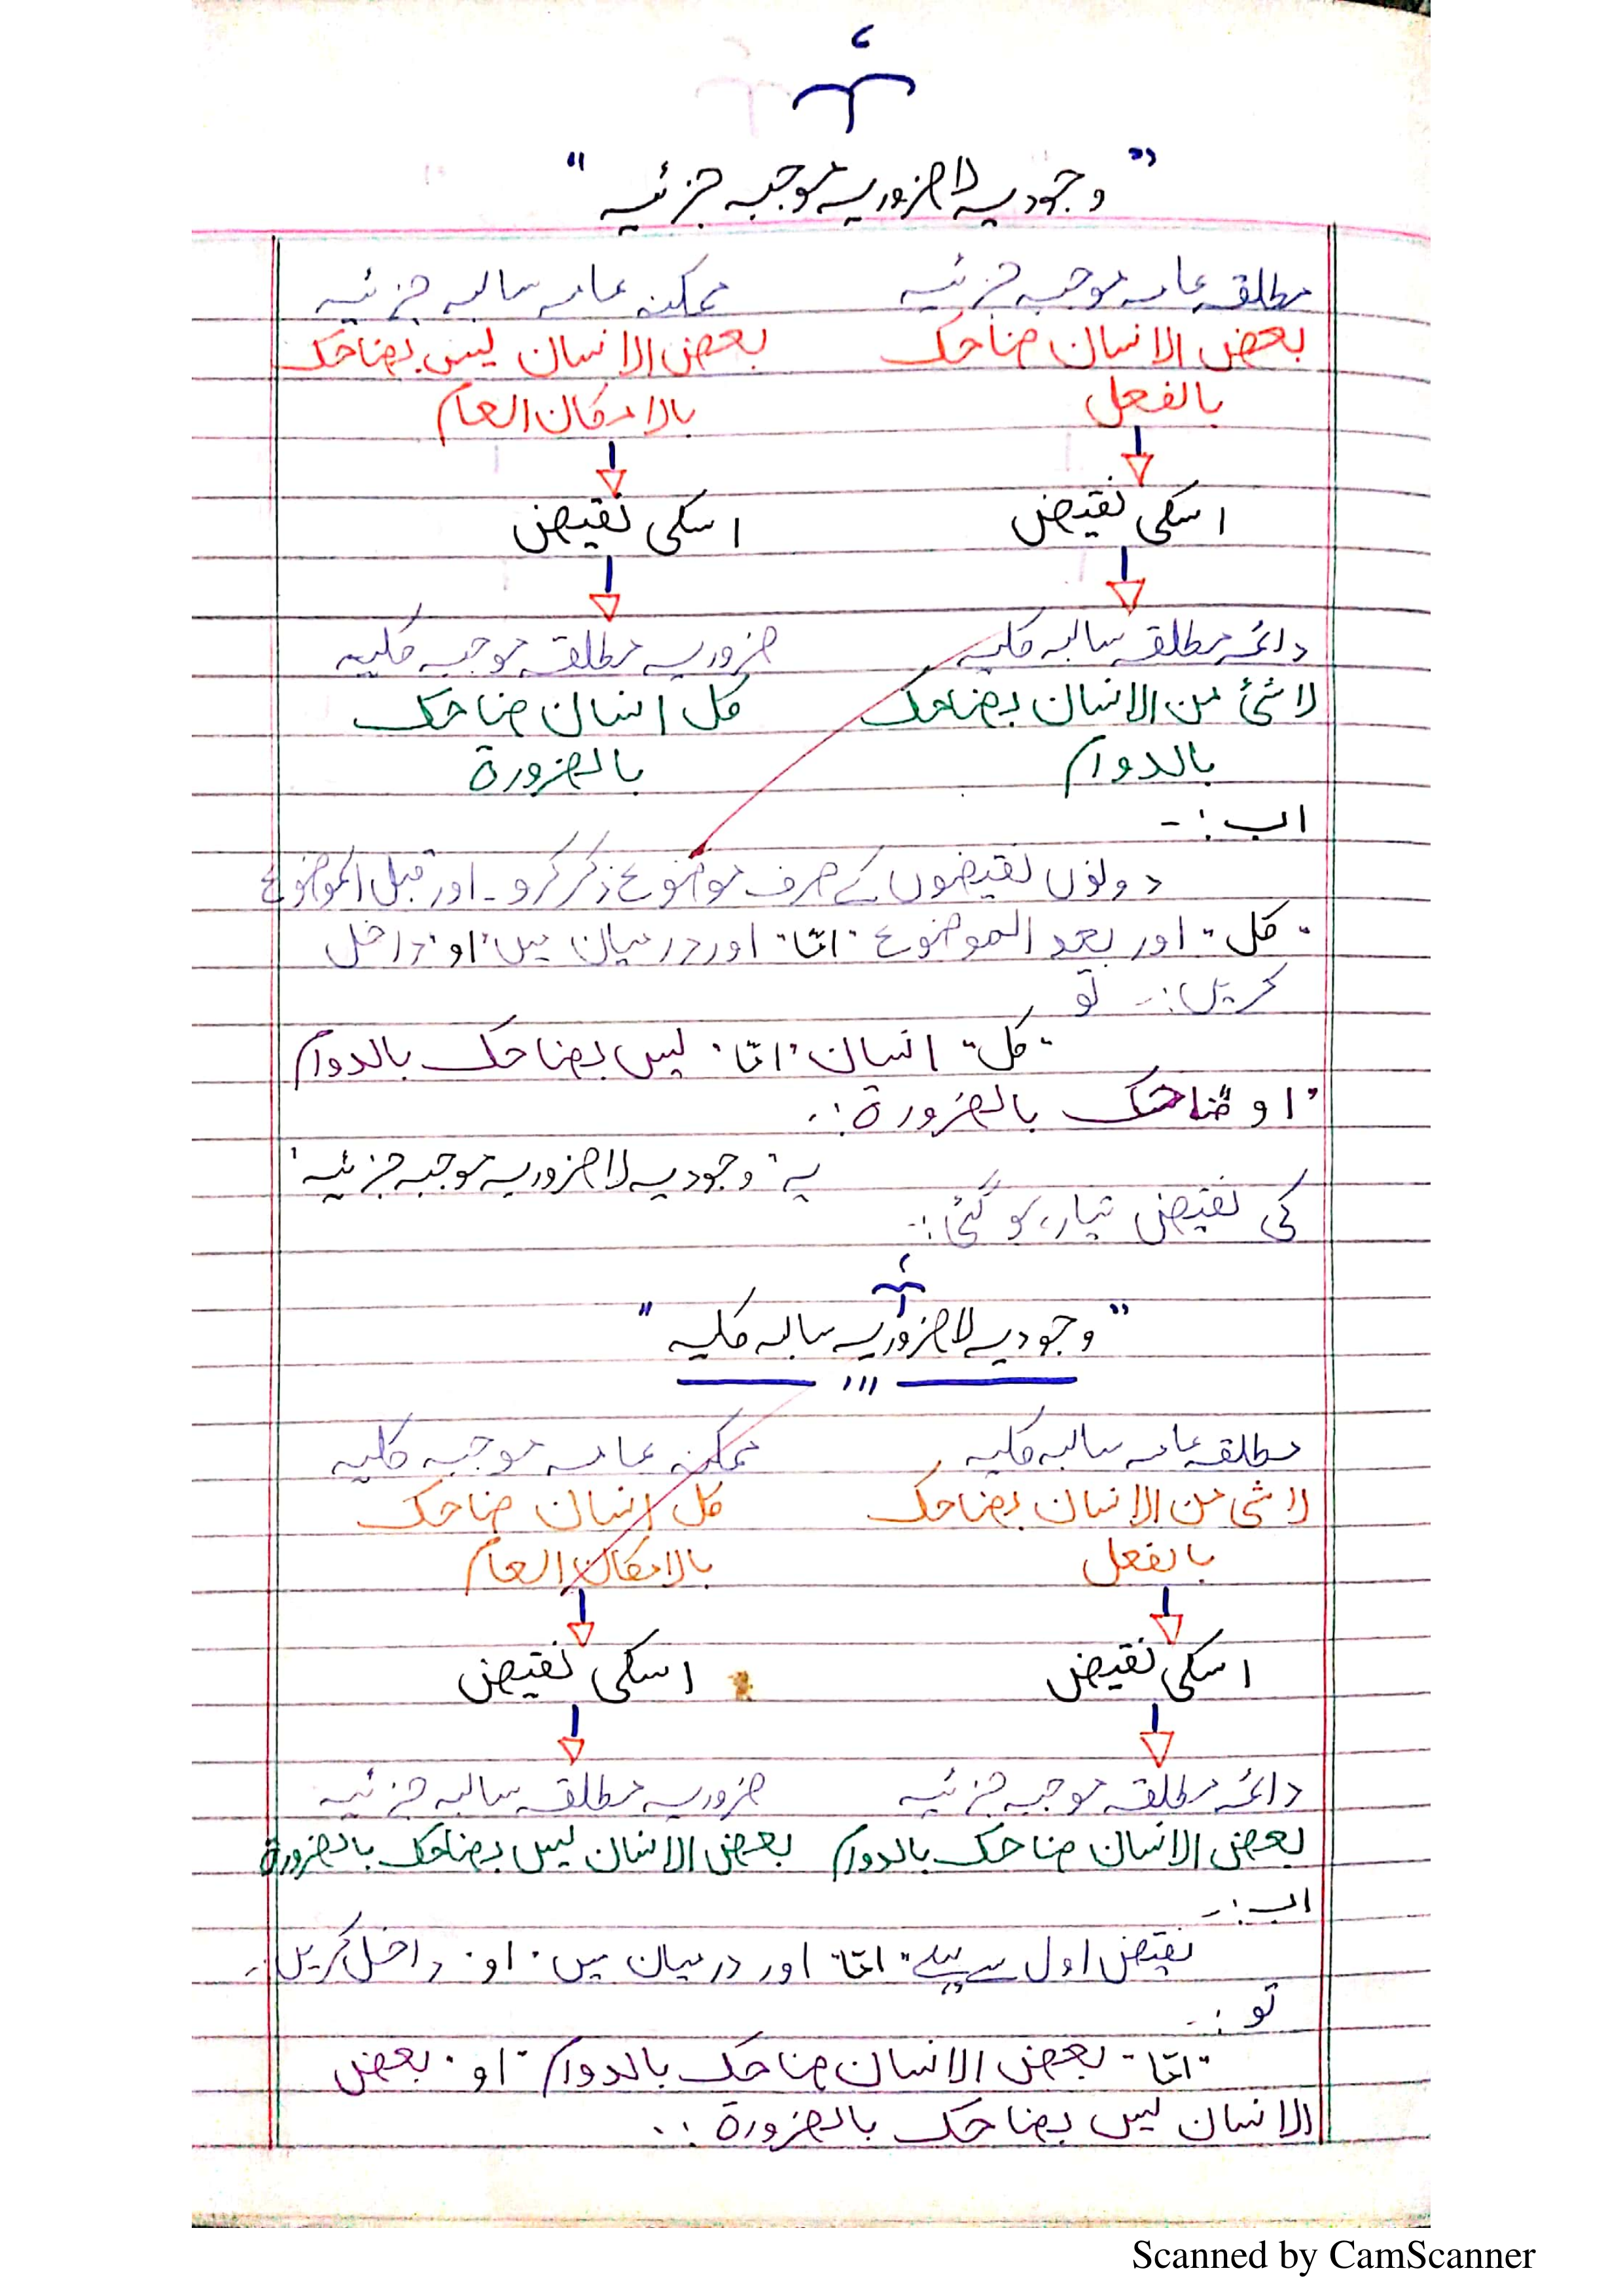 " وجودیہ لا ضروریہ موجبہ جزئیہ "
مطلقہ عامہ موجبہ جزئیہ
ممکنہ عامہ سالبہ جزئیہ
بعض الانسان ضاحک
بعض الانسان لیس بضاحک
بالفعل
بالامکان العام
اسکی نقیض
اسکی نقیض
دائمہ مطلقہ سالبہ کلیہ
ضروریہ مطلقہ موجبہ کلیہ
لا شئ من الانسان بضاحک
کل انسان ضاحک
بالدوام
بالضرورۃ
اب :-
دونوں نقیضوں کے صرف موضوع ذکر کرو۔ اور قبل الموضوع
"کل" اور بعد الموضوع "امّا" اور درمیان میں "او" داخل
کریں :- تو
"کل" انسان "امّا" لیس بضاحک بالدوام
"او" ضاحک بالضرورۃ :.
یہ "وجودیہ لا ضروریہ موجبہ جزئیہ"
کی نقیض تیار ہو گئی :-
" وجودیہ لا ضروریہ سالبہ کلیہ "
مطلقہ عامہ سالبہ کلیہ
ممکنہ عامہ موجبہ کلیہ
لا شئ من الانسان بضاحک
کل انسان ضاحک
بالفعل
بالامکان العام
اسکی نقیض
اسکی نقیض
دائمہ مطلقہ موجبہ جزئیہ
ضروریہ مطلقہ سالبہ جزئیہ
بعض الانسان ضاحک بالدوام
بعض الانسان لیس بضاحک بالضرورۃ
اب :-
نقیض اول سے پہلے "امّا" اور درمیان میں "او" داخل کریں :-
تو :-
"امّا" بعض الانسان ضاحک بالدوام "او" بعض
الانسان لیس بضاحک بالضرورۃ :.
Scanned by CamScanner